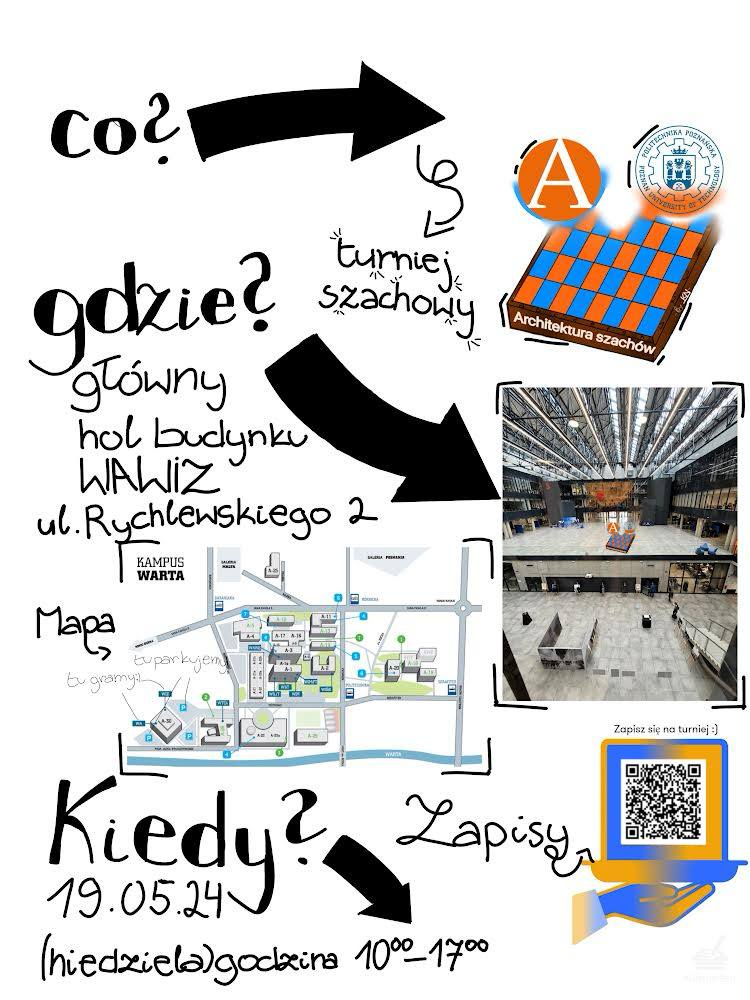 co?
A
POLITECHNIKA POZNAŃSKA
POZNAN UNIVERSITY OF TECHNOLOGY
turniej
szachowy
Architektura szachów
gdzie?
główny
hol budynku
WAWIZ
ul. Rychlewskiego 2
KAMPUS
WARTA
GALERIA
MALTA
GALERIA POSNANIA
A-4
A-17
A-16
A-11
A-3
A-1
A-2
A-20
A-30
POLITECHNIKA
WARTA
Mapa
tu parkujemy
tu gramy?
Zapisz się na turniej :)
Kiedy?
Zapisy
19.05.24
(niedziela) godzina 10⁰⁰-17⁰⁰